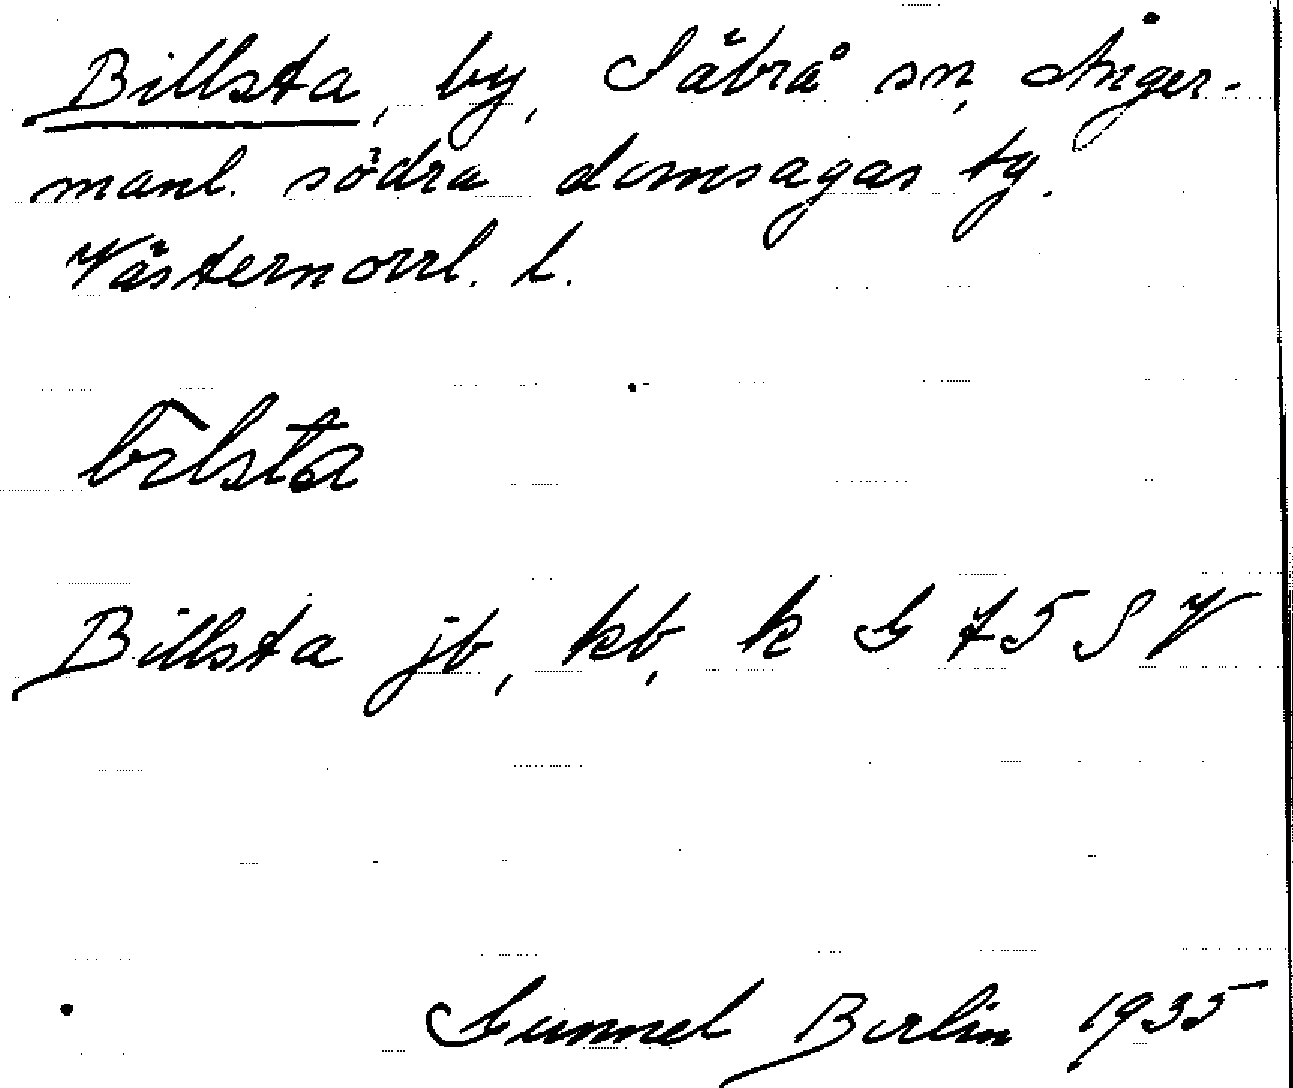 Billsta, by, Säbrå sn, Ånger-
manl. södra domsagas tg.
Västernorrl. l.
Billsta jb, kb, k G 75 S V
Gunnel Berlin 1935